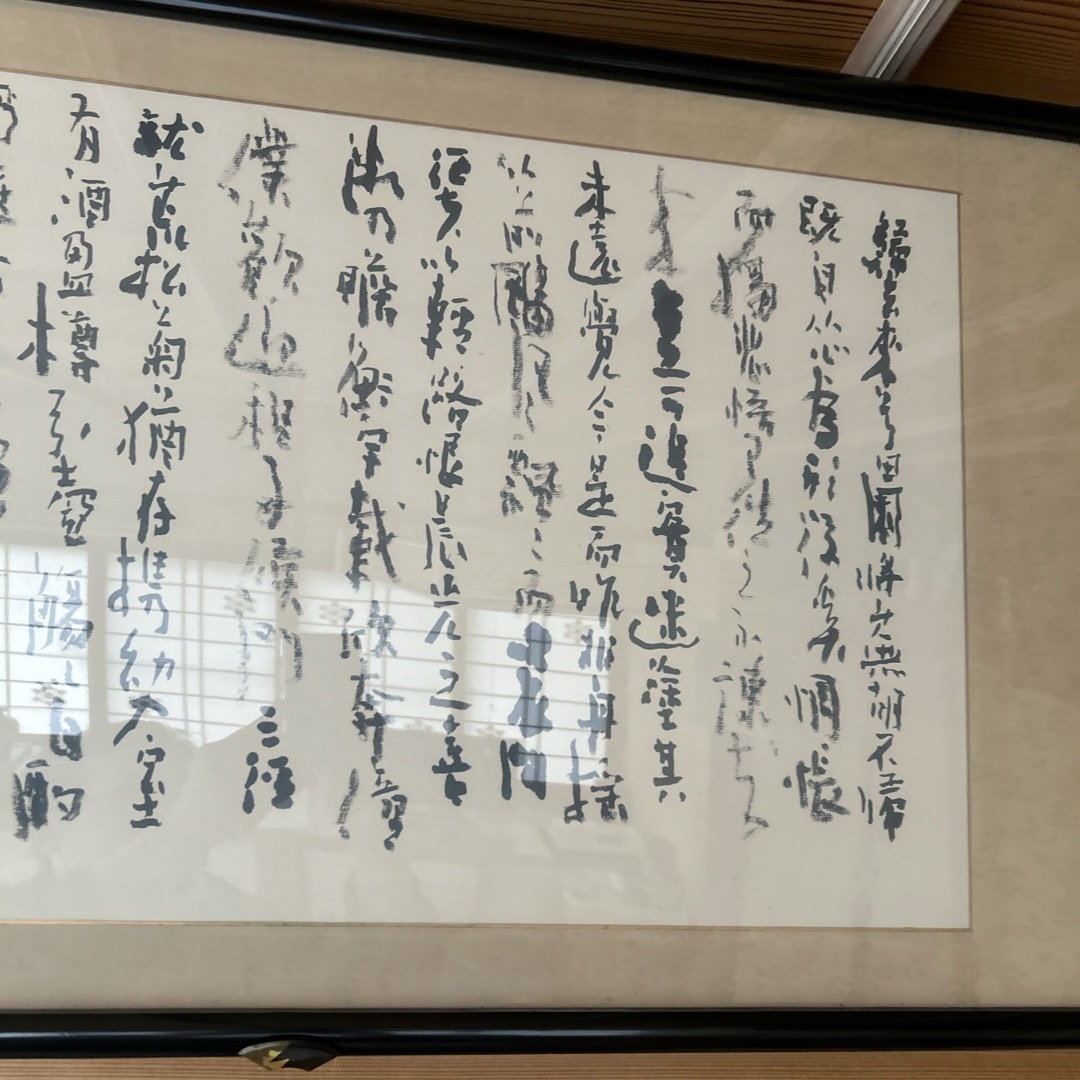 歸去来兮田園将蕪胡不帰
既自以心為形役奚惆悵
而獨悲悟已往之不諫知
来者之可追寔迷塗其
未遠覺今是而昨非舟遥
々以軽颺風飄々而吹衣問
征夫以前路恨晨光之熹
微乃瞻衡宇載欣奔僮
僕歓迎稚子候門三径
就荒松菊猶存携幼入室
有酒盈樽引壺觴以自酌